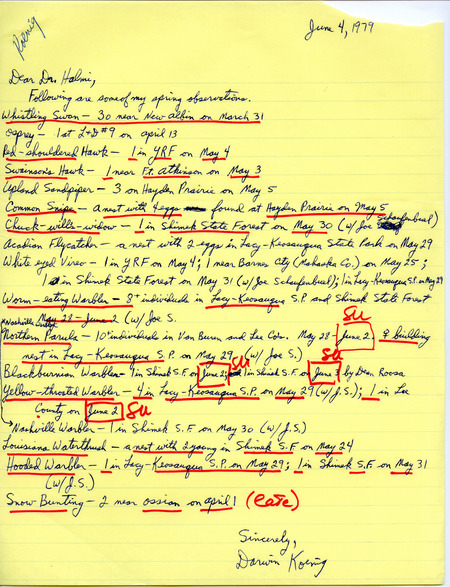 Koenig
June 4, 1979
Dear Dr. Halmi,
Following are some of my spring observations.
Whistling Swan - 30 near New Albin on March 31
Osprey - 1 at L+D #9 on april 13
Red-shouldered Hawk - 1 in YRF on May 4
Swainson's Hawk - 1 near Ft. Atkinson on May 3
Upland Sandpiper - 3 on Hayden Prairie on May 5
Common Snipe - a nest with 4 eggs found at Hayden Prairie on May 5
Chuck-wills-widow - 1 in Shimek State Forest on May 30 (w/ Joe Schaufenbuel)
Acadian Flycatcher - a nest with 2 eggs in Lacy-Keosauqua State Park on May 29
White eyed Vireo - 1 in YRF on May 4; 1 near Barnes City (Mahaska Co.) on May 25;
1 in Shimek State Forest on May 31 (w/ Joe Schaufenbuel); 1 in Lacy-Keosauqua S.P. on May 29
Worm-eating Warbler - 8+ individuals in Lacy-Keosauqua S.P. and Shimek State Forest
May 28 - June 2 (w/ Joe S.)
Nashville Warbler
SU
Northern Parula - 10+ individuals in Van Buren and Lee Cos. May 28 - June 2. & building
nest in Lacy-Keosauqua S.P. on May 29 (w/ Joe S.)
SU
SU
Blackburnian Warbler - 1 in Shimek S.F. on June 2; 1 in Shimek S.F. on June 3 by Dean Roosa
Yellow-throated Warbler - 4 in Lacy-Keosauqua S.P. on May 29 (w/ J.S.); 1 in Lee
County on June 2 SU
Nashville Warbler - 1 in Shimek S.F. on May 30 (w/ J.S.)
Louisiana Waterthrush - a nest with 2 young in Shimek S.F. on May 24
Hooded Warbler - 1 in Lacy-Keosauqua S.P. on May 29; 1 in Shimek S.F. on May 31
(w/ J.S.)
Snow Bunting - 2 near ossian on april 1 (late)
Sincerely,
Darwin Koenig